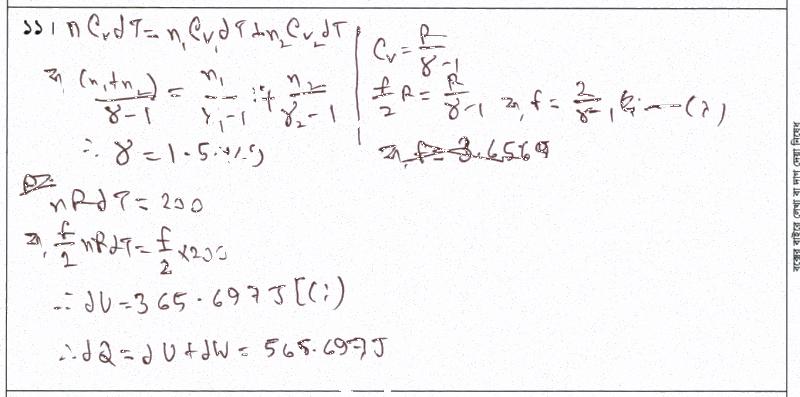 ১১। nCᵥdT = n₁Cᵥ₁dT + n₂Cᵥ₂dT
বা, (n₁+n₂)/(γ-1) = n₁/(γ₁-1) + n₂/(γ₂-1)
∴ γ = 1.5
Cᵥ = R/(γ-1)
f/2 R = R/(γ-1) বা, f = 2/(γ-1)
nRdT = 200
বা, f/2 nRdT = f/2 × 200
∴ dU = 365.697 J [(i)]
∴ dQ = dU + dW = 565.697 J
বক্সের বাইরে লেখা বা দাগ দেয়া নিষেধ